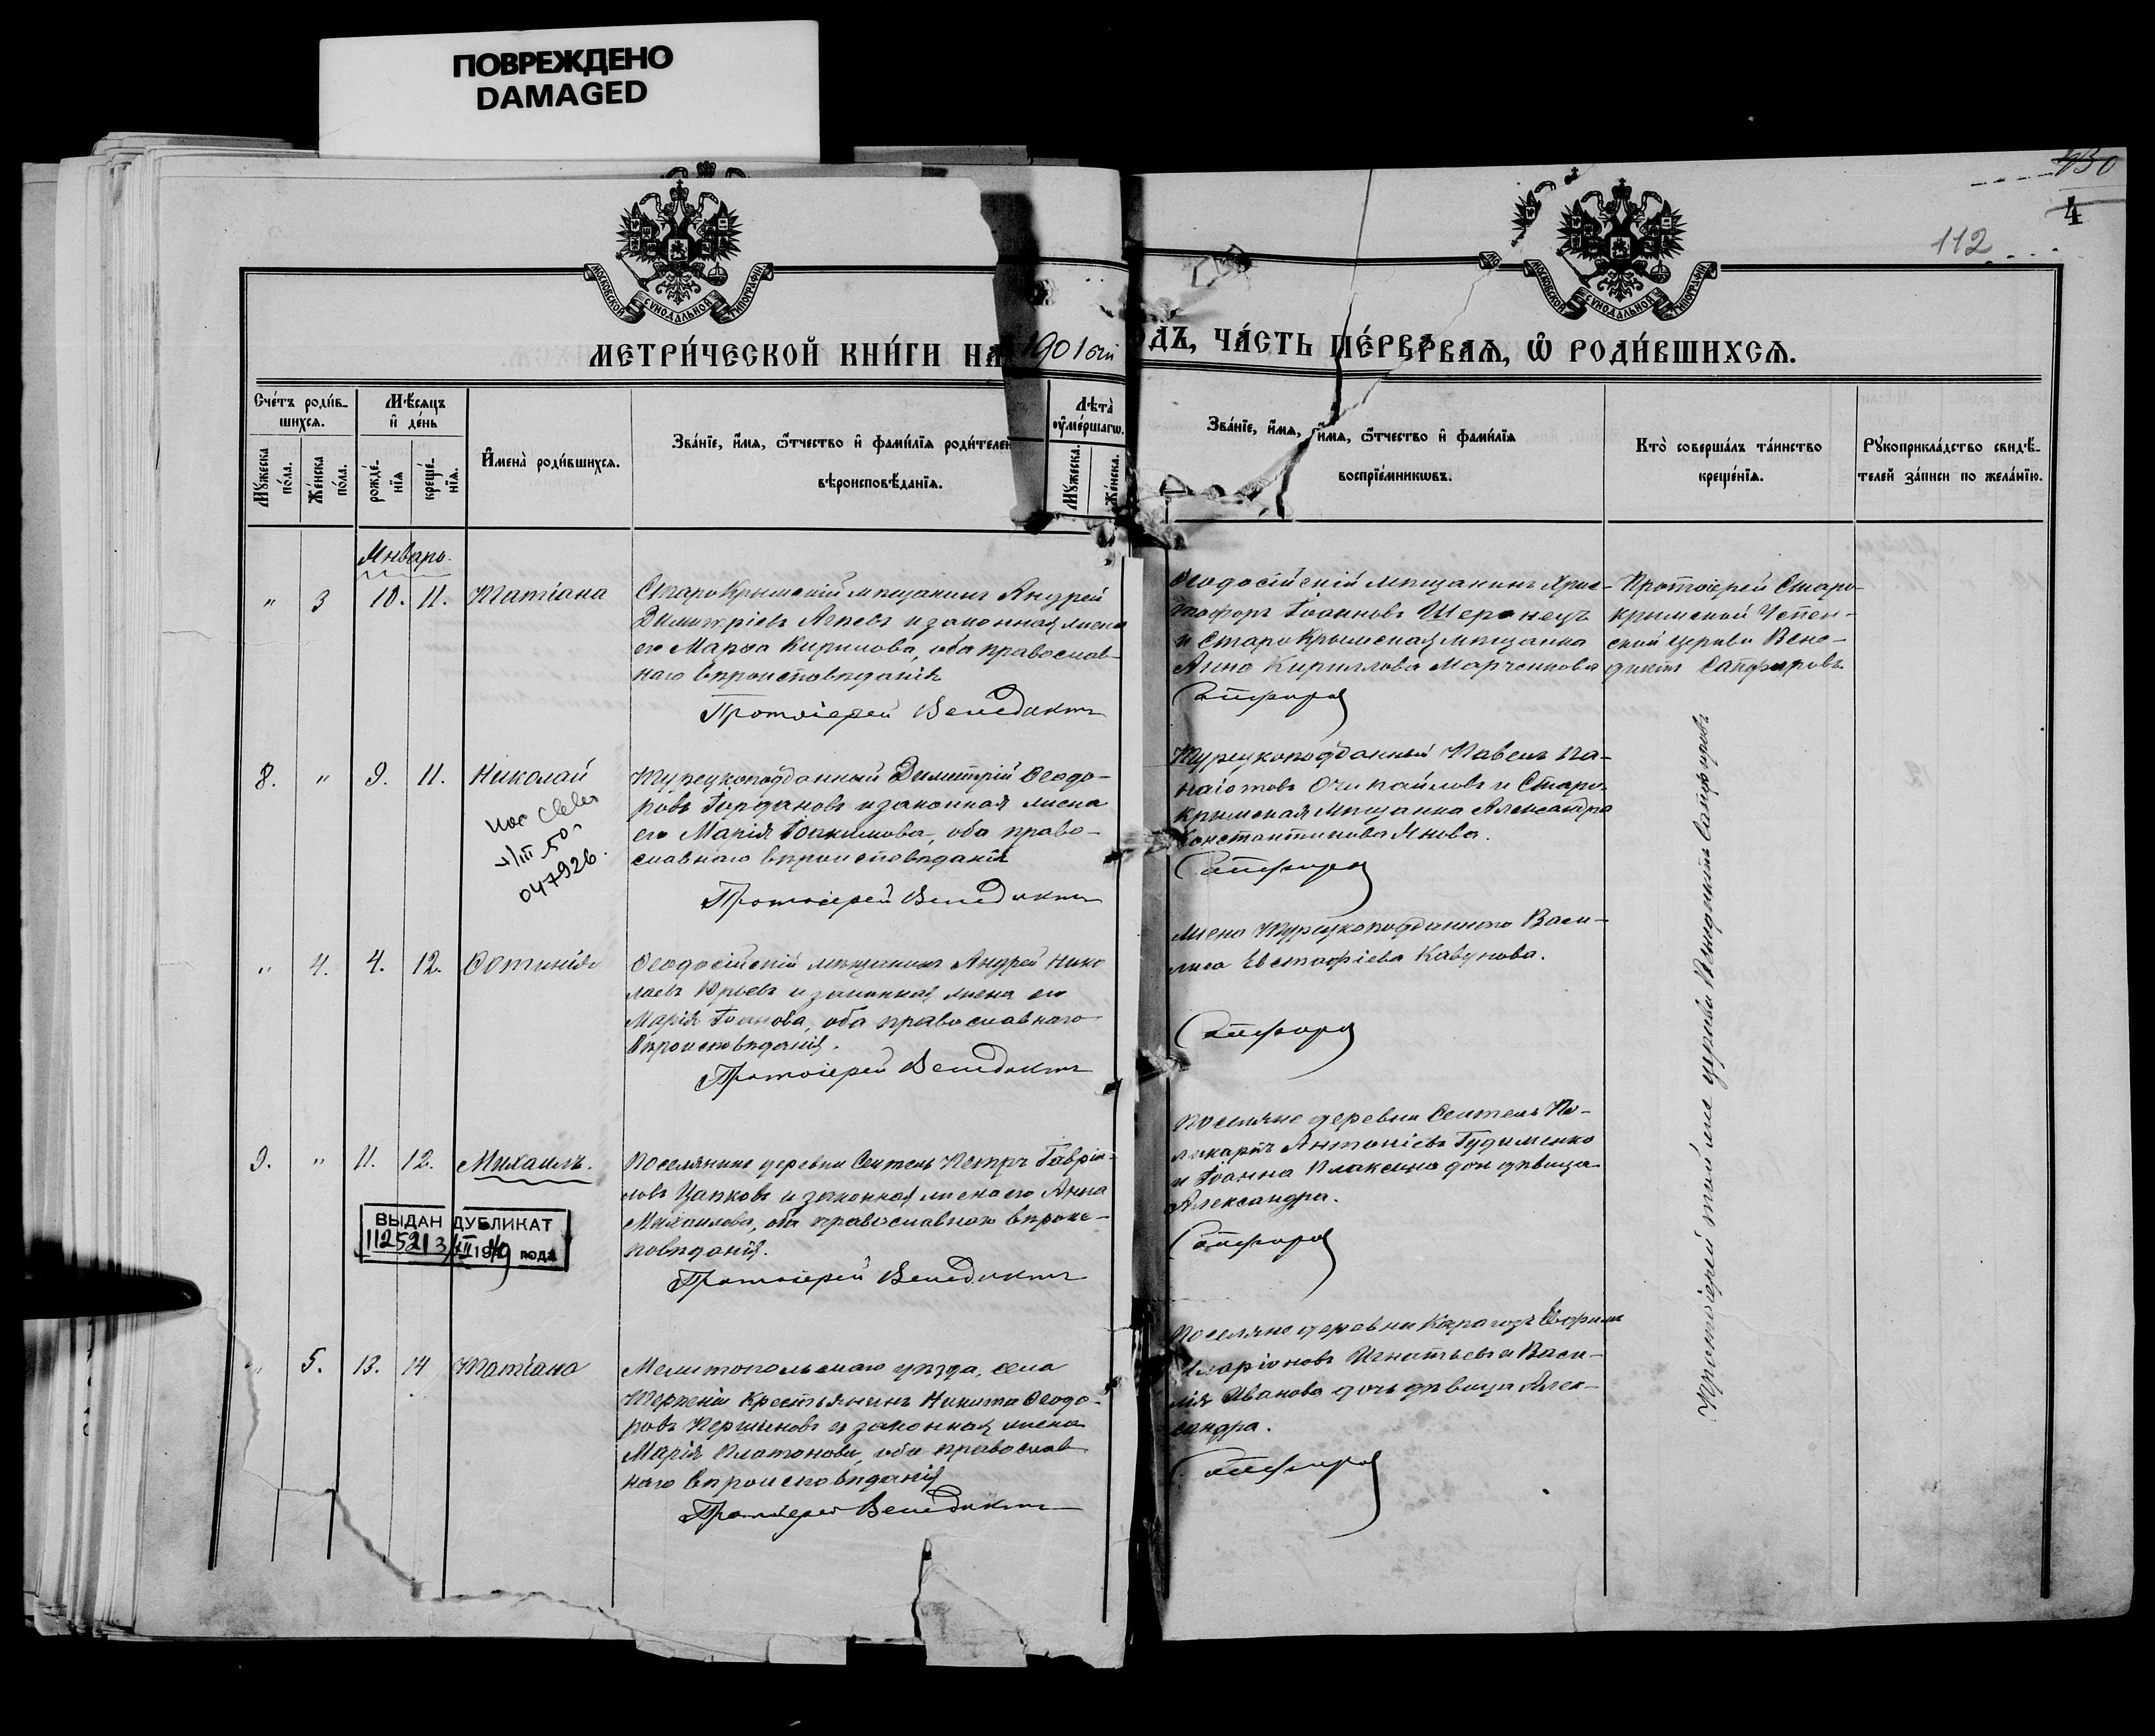 ПОВРЕЖДЕНО
DAMAGED
930
4
112
МОСКОВСКОЙ СѴНОДАЛЬНОЙ ТИПОГРАФІИ
МОСКОВСКОЙ СѴНОДАЛЬНОЙ ТИПОГРАФІИ
МЕТРИ́ЧЕСКОЙ КНИ́ГИ НА 1901 ый
ДЪ, ЧА́СТЬ ПЕ́РВАЯ, Ѡ҆ РОДИ́ВШИХСЯ.
Счéтъ роди́в-
шихся.
Мꙋжеска пóла.
Жéнска пóла.
Мѣ́сяцъ
и҆ дéнь
рождé-
нїѧ
крещé-
нїѧ.
И҆менà роди́вшихся.
Звáнїе, и҆́мя, ѻ҆́тчество и҆ фами́лїя роди́телей
вѣроисповѣ́данїя.
Лѣтà
ᲂу҆мéршагѡ.
Мꙋ́жеска.
Жéнска.
Звáнїе, и҆́мя, и҆́мя, ѻ҆́тчество и҆ фами́лїя
воспрїéмникѡвъ.
Ктò совершáлъ тáинство
крещéнїя.
Рꙋкоприклáдство свидѣ́-
телей зáписи по желáнїю.
Январь.
" 3 10. 11. Татіана
Старокрымскій мѣщанинъ Андрей
Димитріевъ Агѣевъ и законная жена
его Марѳа Кирилова, оба православ-
наго вѣроисповѣданія
Протоіерей Венедиктъ
Ѳеодосійскій мѣщанинъ Хрис-
тофоръ Іоанновъ Шеронецъ
и Старокрымская мѣщанка
Анна Кириллова Марченкова
Сапфировъ
Протоіерей Старо-
крымской Успен-
ской церкви Вене-
диктъ Сапфировъ
8. " 9. 11. Николай
047926.
Турецкоподданный Димитрій Ѳеодо-
ровъ Іордановъ и законная жена
его Марія Іоакимова, оба право-
славнаго вѣроисповѣданія
Протоіерей Венедиктъ
Турецкоподданный Павелъ Па-
наіотовъ и Старо-
крымская мѣщанка Александра
Константинова Янова.
Сапфировъ
" 4. 4. 12. Ѳотинія
Ѳеодосійскій мѣщанинъ Андрей Нико
лаевъ Юрьевъ и законная жена его
Марія Іоанова, оба православнаго
вѣроисповѣданія.
Протоіерей Венедиктъ
Жена Турецкоподданного Васи-
лиса Евстафіева Кавунова.
Сапфировъ
9. " 11. 12. Михаилъ.
ВЫДАН ДУБЛИКАТ
112521 3/XII 1949 года
Поселянинъ деревни Сеитель Петръ Гаврі-
ловъ Цапковъ и законная жена его Анна
Михаилова, оба православнаго вѣроис-
повѣданія.
Протоіерей Венедиктъ
Поселяне деревни Сеитель По-
ликарпъ Антоніевъ Гудименко
и Іоанна Плаксина дочь дѣвица
Александра.
Сапфировъ
" 5. 13. 14 Татіана
Мелитопольскаго уѣзда, села
Терпеніи Крестьянинъ Никита Ѳеодо-
ровъ Першиновъ и законная жена
Марія Платонова, оба православ
наго вѣроисповѣданія
Протоіерей Венедиктъ
Поселяне деревни Карагозъ Евфимъ
Иларіоновъ Игнатьевъ и Васи-
лія Иванова дочь дѣвица Алек-
сандра.
Сапфировъ
Протоіерей той же церкви Венедиктъ Сапфировъ